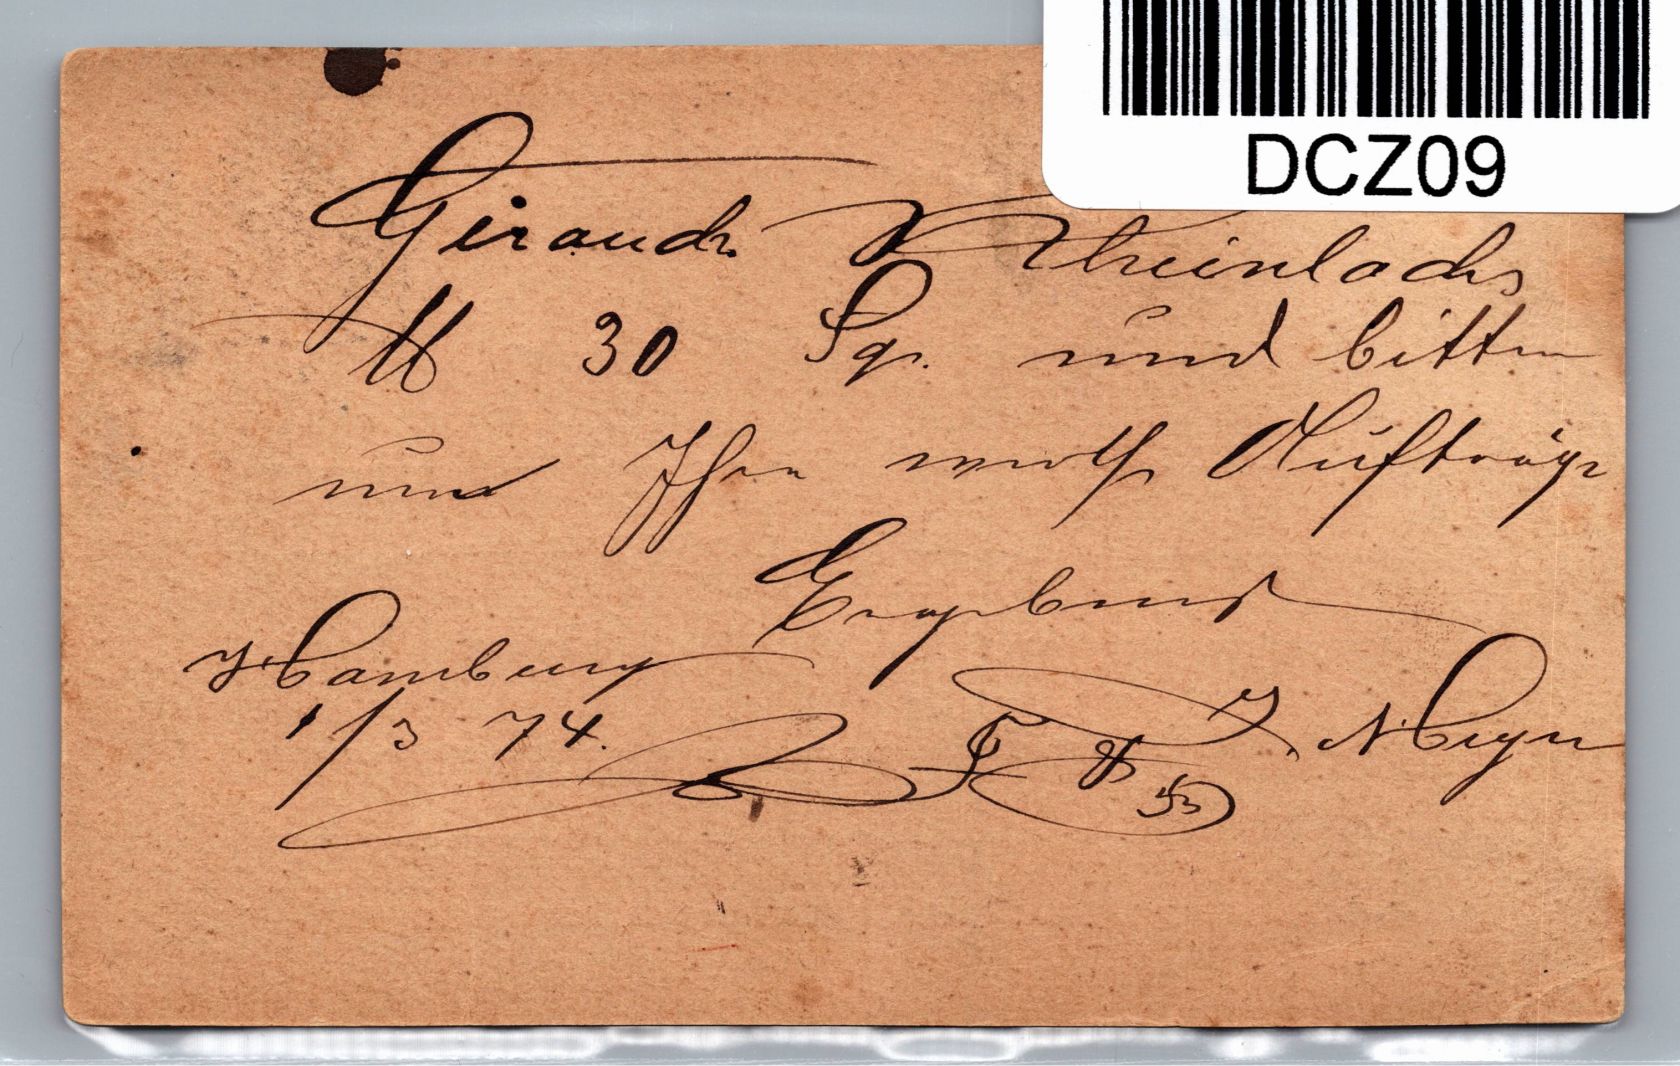 DCZ09
Geräuch. Rheinlachs
℔ 30 Sgr. und bitten
um Ihre werth Aufträge
Ergebenst
Hamburg
1/3 74. J. H. Meyer